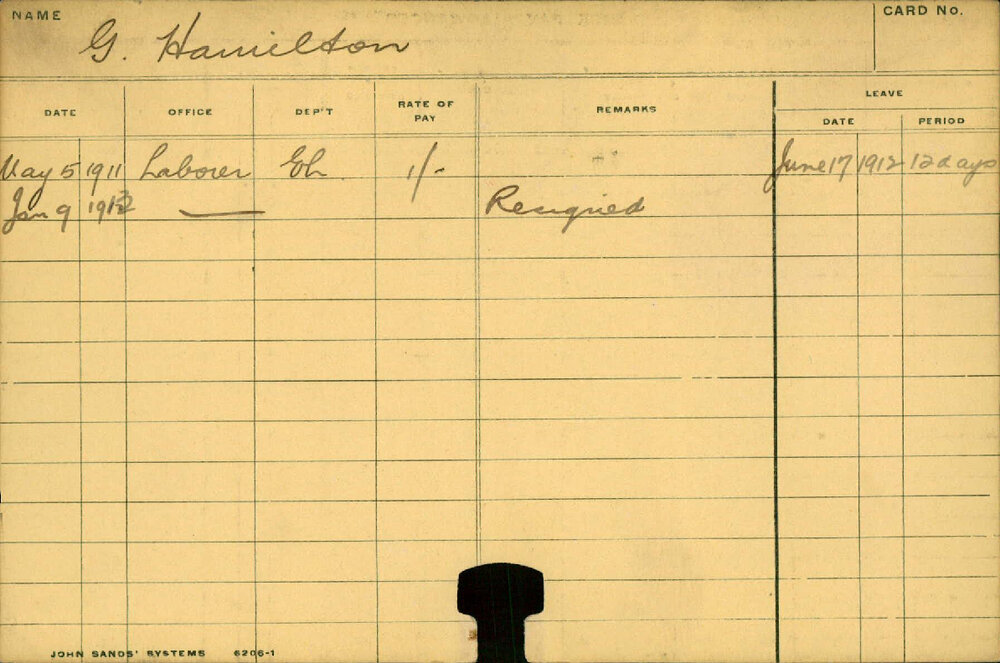 NAME
G. Hamilton
CARD No.
DATE OFFICE DEP'T RATE OF PAY REMARKS LEAVE
DATE PERIOD
May 5 1911 Laborer Eh. 1/- June 17 1912 12 days
Jan 9 1913 — Resigned
JOHN SANDS' SYSTEMS 6206-1